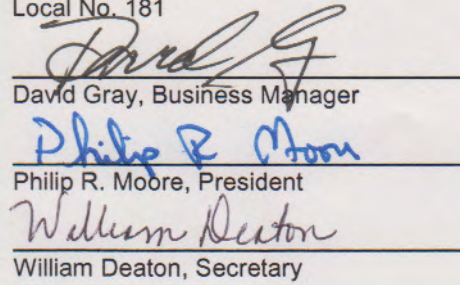 Local No. 181
David G
David Gray, Business Manager
Philip R Moore
Philip R. Moore, President
William Deaton
William Deaton, Secretary